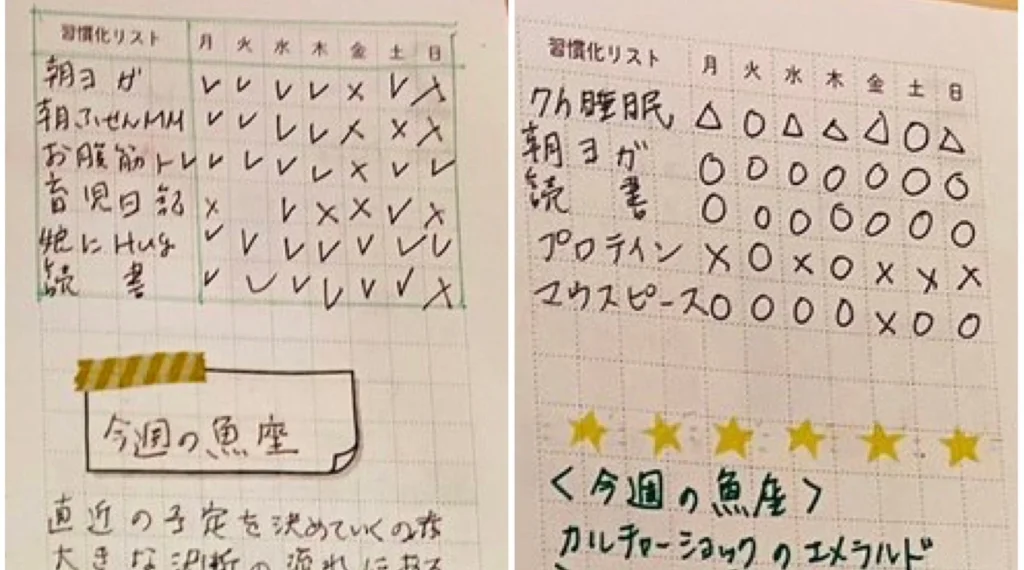 習慣化リスト 月 火 水 木 金 土 日
朝ヨガ ✓ ✓ ✓ ✓ × ✓ ×
朝ふせんMM ✓ ✓ ✓ ✓ × × ×
お腹筋トレ ✓ ✓ ✓ ✓ × ✓ ✓
育児日記 × ✓ × × ✓ ×
娘にHug ✓ ✓ ✓ ✓ ✓ ✓ ✓
読書 ✓ ✓ ✓ ✓ ✓ ✓ ×
今週の魚座
直近の予定を決めていくのは
大きな決断の流れにある
習慣化リスト 月 火 水 木 金 土 日
7h睡眠 △ ○ △ △ △ ○ △
朝ヨガ ○ ○ ○ ○ ○ ○ ○
読書 ○ ○ ○ ○ ○ ○ ○
プロテイン × ○ × ○ × × ×
マウスピース ○ ○ ○ ○ × ○ ○
<今週の魚座>
カルチャーショックのエメラルド